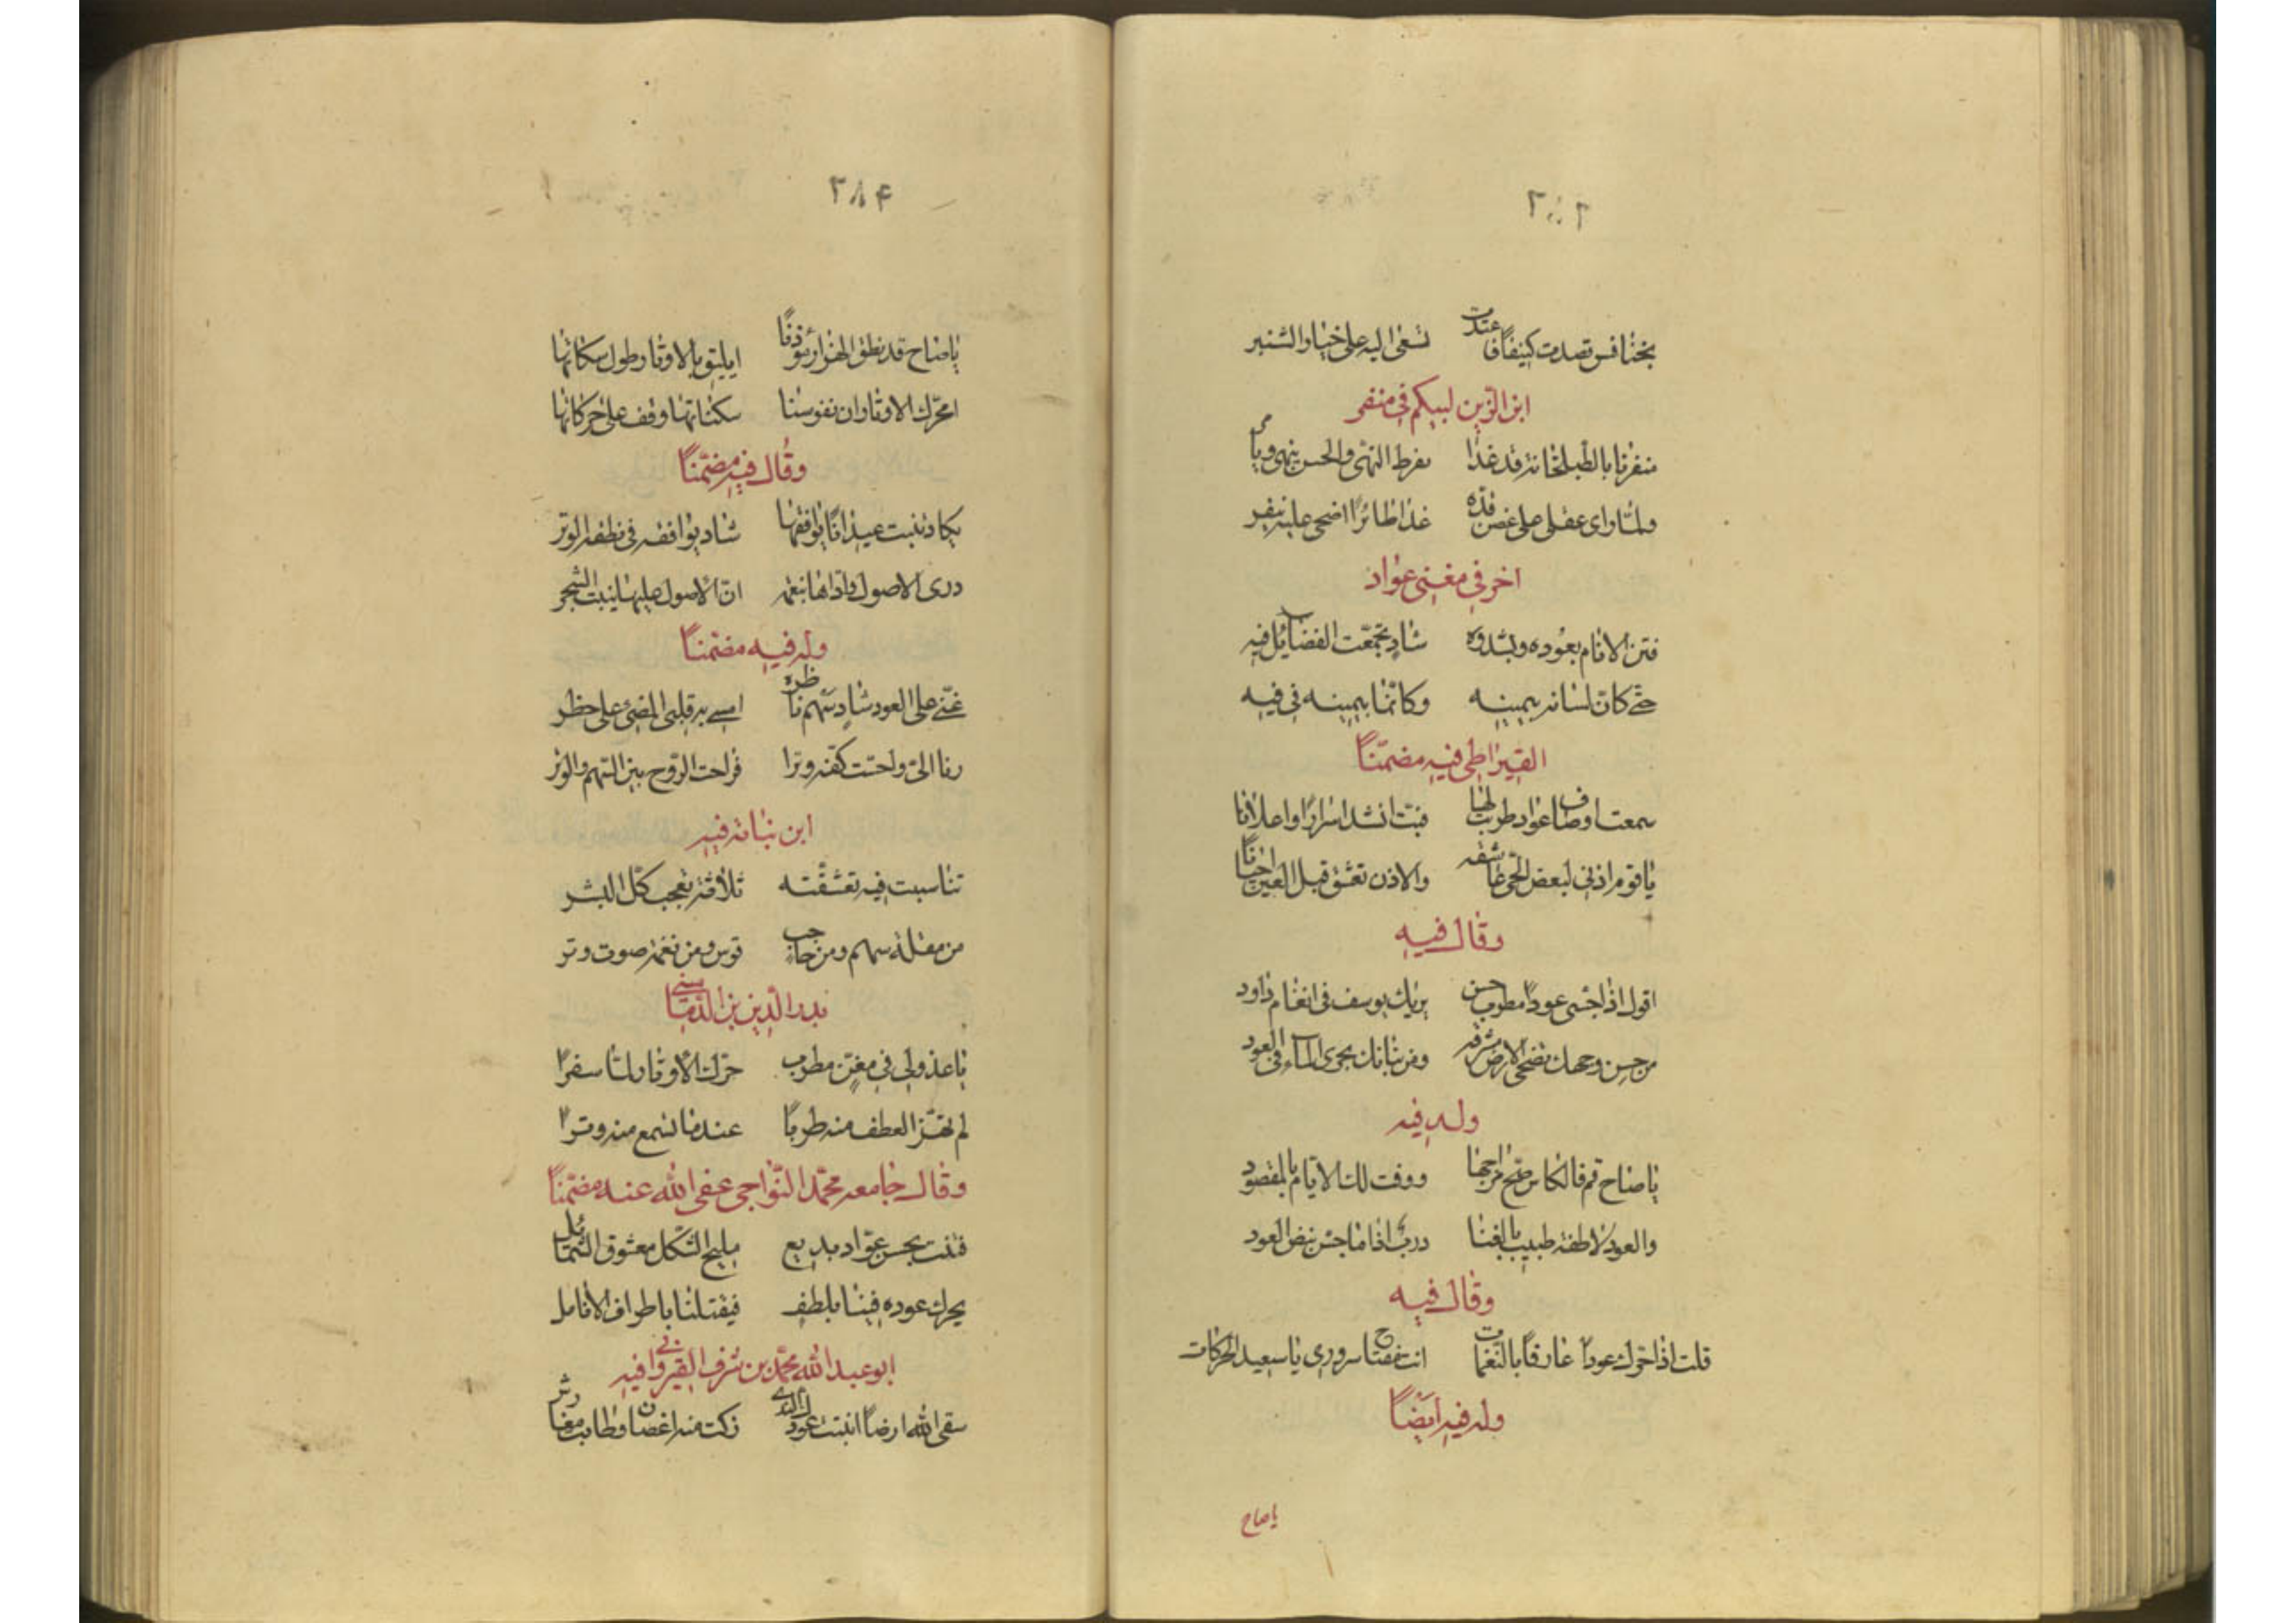 بخنافس قصدت كنيفا قاعدت تسعى اليه على خيار الشنبر
ابن الزين لبيكم في منفر
منفرنا بالطبلخانة قد غدا بفرط النهى والحسن ينهى ويأمر
ولما راى عقلى على غصن قده غدا طائرا اضحى عليه ينفر
اخر في مغنى عواد
فتن الانام بعوده وبشدوه شاد تجمعت الفضايل فيه
حتى كان لسانه بيمينه وكانما بيمينه فى فيه
القيراطى فيه مضمنا
سمعت اوصاف عواد طربت لها فبت انشد اسرارا واعلانا
ياقوم اذنى لبعض الحى عاشقه والاذن تعشق قبل العين احيانا
وقال فيه
اقول اذا جسى عودا مطرب حسن يريك يوسف فى انغام داود
من حسن وجهك تضحى الارض مشرقة ومن بنانك يجرى الماء فى العود
وله فيه
ياصاح قم فالكاس صح مزاجها ووفت لك الايام بالمقصود
والعود لاطفه طبيب بالغنا درب اذا ما جس نبض العود
وقال فيه
قلت اذا حرك عودا عارفا بالنغمات انت مفتاح سرورى ياسعيد الحركات
وله فيه ايضا
ياصاح
٢٨٤
ياصاح قد نطق الهزار مؤذنا ايليق بالاوتار طول سكاتها
امحرك الاوتار ان نفوسنا سكناتها وقف على حركاتها
وقال فيه مضمنا
شاد يوافقه فى نطقه الوتر
درى الاصول واداها بنغمه ان الاصول عليها ينبت الشجر
وله فيه مضمنا
غنى على العود شاد سهم ناظره امسى به قلبى المضنى على خطر
رنا الى وحست كفه وترا فراحت الروح بين السهم والوتر
ابن نباته فيه
تناسبت فيه تعشقته ثلاثة تعجب كل البشر
من مقلة سهم ومن حاجب قوس ومن نغمة صوت وتر
بدر الدين بن الدمامينى
ياعذولى فى مغن مطرب حرك الاوتار لما سفرا
لم تهز العطف منه طربا عندما تسمع منه وترا
وقال جامعه محمد النواجى عفى الله عنه مضمنا
فتنت بحسن عواد بديع مليح الشكل معشوق الشمائل
يحرك عوده فينا بلطف فيقتلنا باطراف الانامل
ابو عبد الله محمد بن شرف القيروانى فيه
سقى الله ارضا انبتت عودك الذى زكت منه اغصان وطابت مغارش